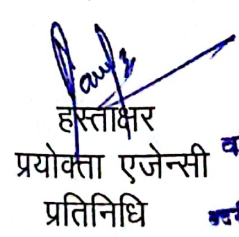 हस्ताक्षर
प्रयोक्ता एजेन्सी
प्रतिनिधि